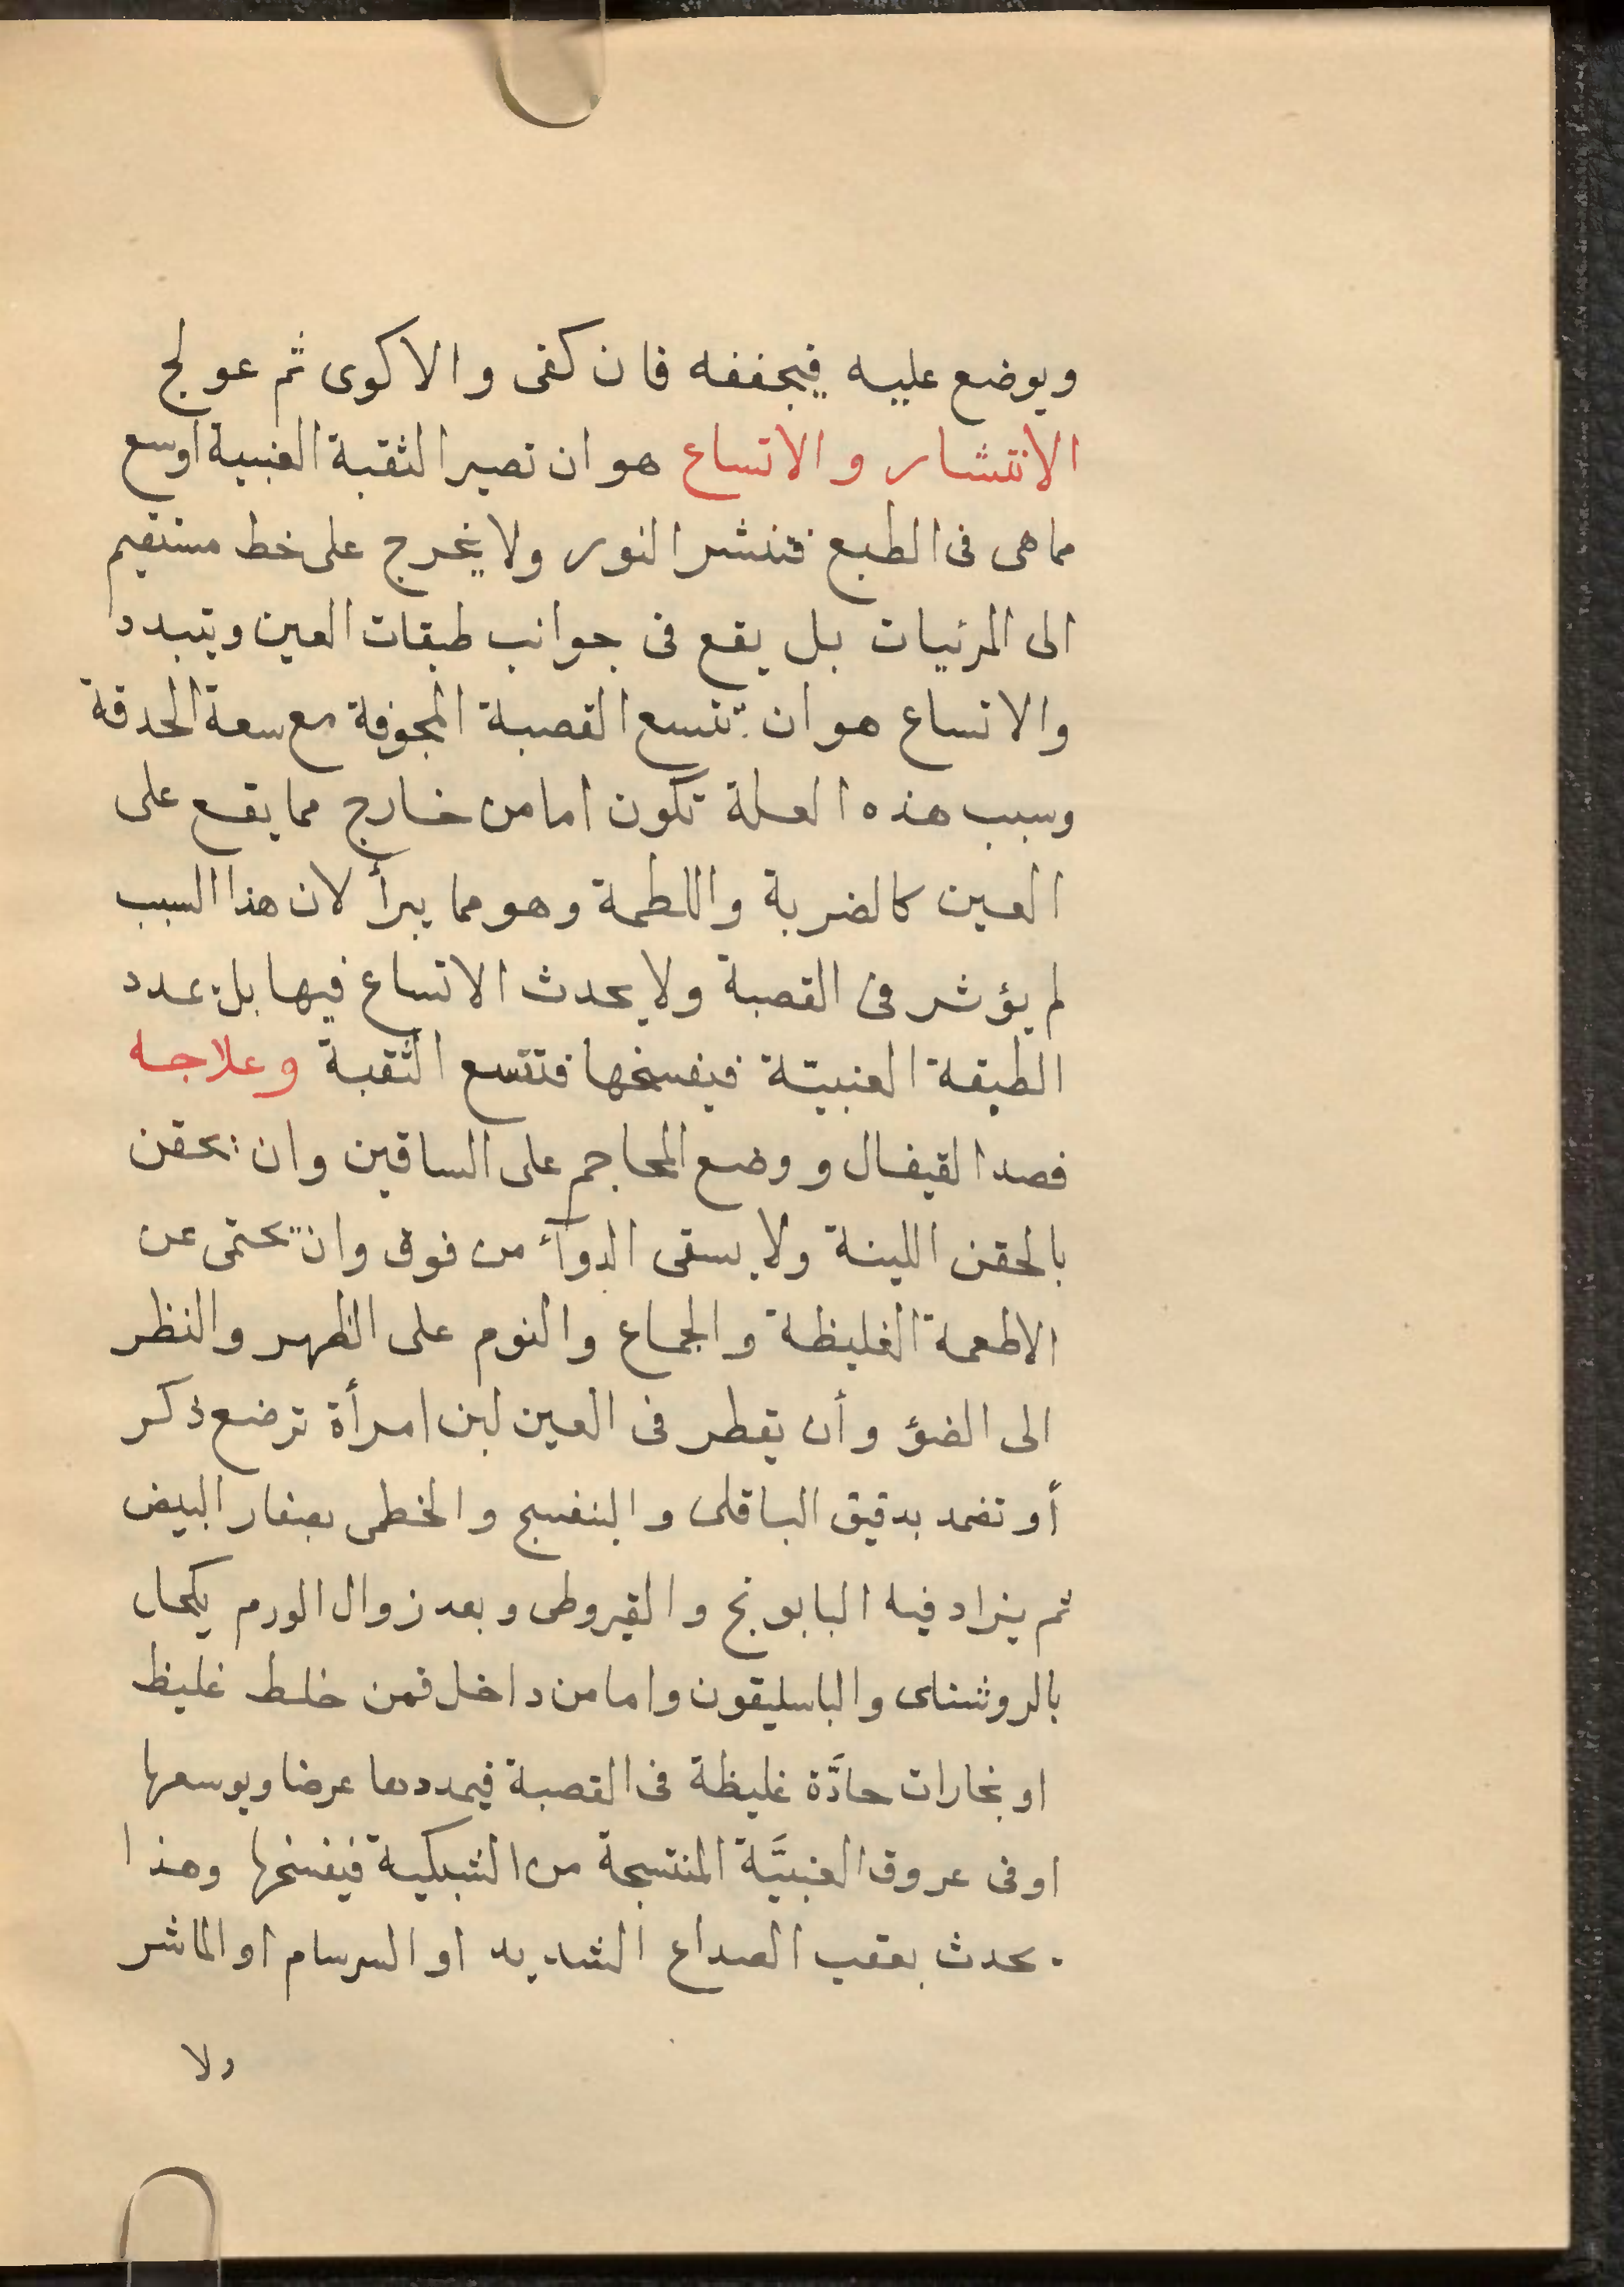 ويوضع عليه فيجففه فان كفى والا كوى ثم عولج
الانتشار والاتساع هو ان تصير الثقبة العنبية اوسع
مما هى فى الطبع فتنشر النور ولا يخرج على خط مستقيم
الى المرئيات بل يقع فى جوانب طبقات العين ويتبدد
والاتساع هو ان تتسع القصبة المجوفة مع سعة الحدقة
وسبب هذه العلة تكون اما من خارج مما يقع على
العين كالضربة واللطمة وهو مما يبرأ لان هذا السبب
لم يؤثر فى القصبة ولا يحدث الاتساع فيها بل يمدد
الطبقة العنبيّة فيفسخها فتتسع الثقبة وعلاجه
فصد القيفال ووضع المحاجم على الساقين وان يحقن
بالحقن اللينة ولا يسقى الدوآء من فوق وان يحتمى عن
الاطعمة الغليظة والجماع والنوم على الظهر والنظر
الى الضؤ وأن يقطر فى العين لبن امرأة ترضع ذكر
أو تضمد بدقيق الباقلى والبنفسج والخطمى بصفار البيض
ثم يزاد فيه البابونج والقيروطى وبعد زوال الورم يكحل
بالروشناى والباسليقون واما من داخل فمن خلط غليظ
او بخارات حادَّة غليظة فى القصبة فيمددها عرضا ويوسعها
او فى عروق العنبيَّة المنتسجة من الشبكية فيفسخها وهذا
يحدث بعقب الصداع الشديد او السرسام او الماشر
ولا